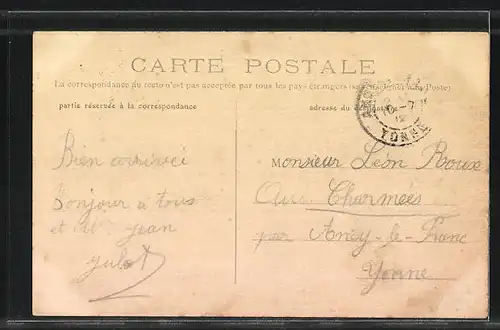 CARTE POSTALE
La correspondance au recto n'est pas acceptée par tous les pays étrangers (se renseigner à la Poste)
partie réservée à la correspondance
adresse du destinataire
YONNE
Bien arrivé ici
Bonjour à tous
et jean
julot
Monsieur Léon Roux
Aux Charmées
par Ancy-le-Franc
Yonne